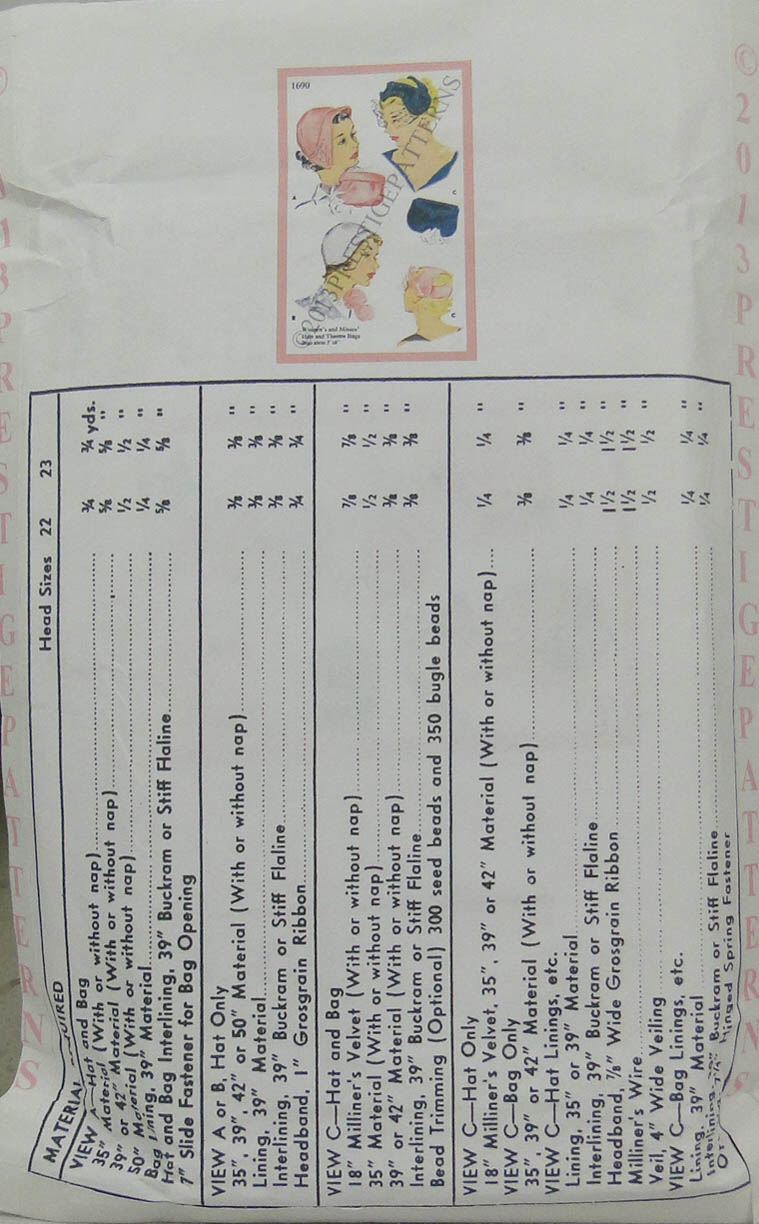 1690
A
C
B
C
Women's and Misses'
Hats and Theatre Bags
©2013PRESTIGEPATTERNS
©2013PRESTIGEPATTERNS
2013PRESTIGEPATTERNS
MATERIAL REQUIRED Head Sizes 22 23
VIEW A—Hat and Bag
35" Material (With or without nap) ¾ ¾ yds.
39" or 42" Material (With or without nap) ⅝ ⅝ "
50" Material (With or without nap) ½ ½ "
Bag Lining, 39" Material ¼ ¼ "
Hat and Bag Interlining, 39" Buckram or Stiff Flaline ⅝ ⅝ "
7" Slide Fastener for Bag Opening
VIEW A or B, Hat Only
35", 39", 42" or 50" Material (With or without nap) ⅜ ⅜ "
Lining, 39" Material ⅜ ⅜ "
Interlining, 39" Buckram or Stiff Flaline ⅜ ⅜ "
Headband, 1" Grosgrain Ribbon ¾ ¾ "
VIEW C—Hat and Bag
18" Milliner's Velvet (With or without nap) ⅞ ⅞ "
35" Material (With or without nap) ½ ½ "
39" or 42" Material (With or without nap) ⅜ ⅜ "
Interlining, 39" Buckram or Stiff Flaline ⅜ ⅜ "
Bead Trimming (Optional) 300 seed beads and 350 bugle beads
VIEW C—Hat Only
18" Milliner's Velvet, 35", 39" or 42" Material (With or without nap) ¼ ¼ "
VIEW C—Bag Only
35", 39" or 42" Material (With or without nap) ⅜ ⅜ "
VIEW C—Hat Linings, etc.
Lining, 35" or 39" Material ¼ ¼ "
Interlining, 39" Buckram or Stiff Flaline ¼ ¼ "
Headband, ⅞" Wide Grosgrain Ribbon 1½ 1½ "
Milliner's Wire 1½ 1½ "
Veil, 4" Wide Veiling ½ ½ "
VIEW C—Bag Linings, etc.
Lining, 39" Material ¼ ¼ "
Interlining, 39" Buckram or Stiff Flaline ¼ ¼ "
Hinged Spring Fastener